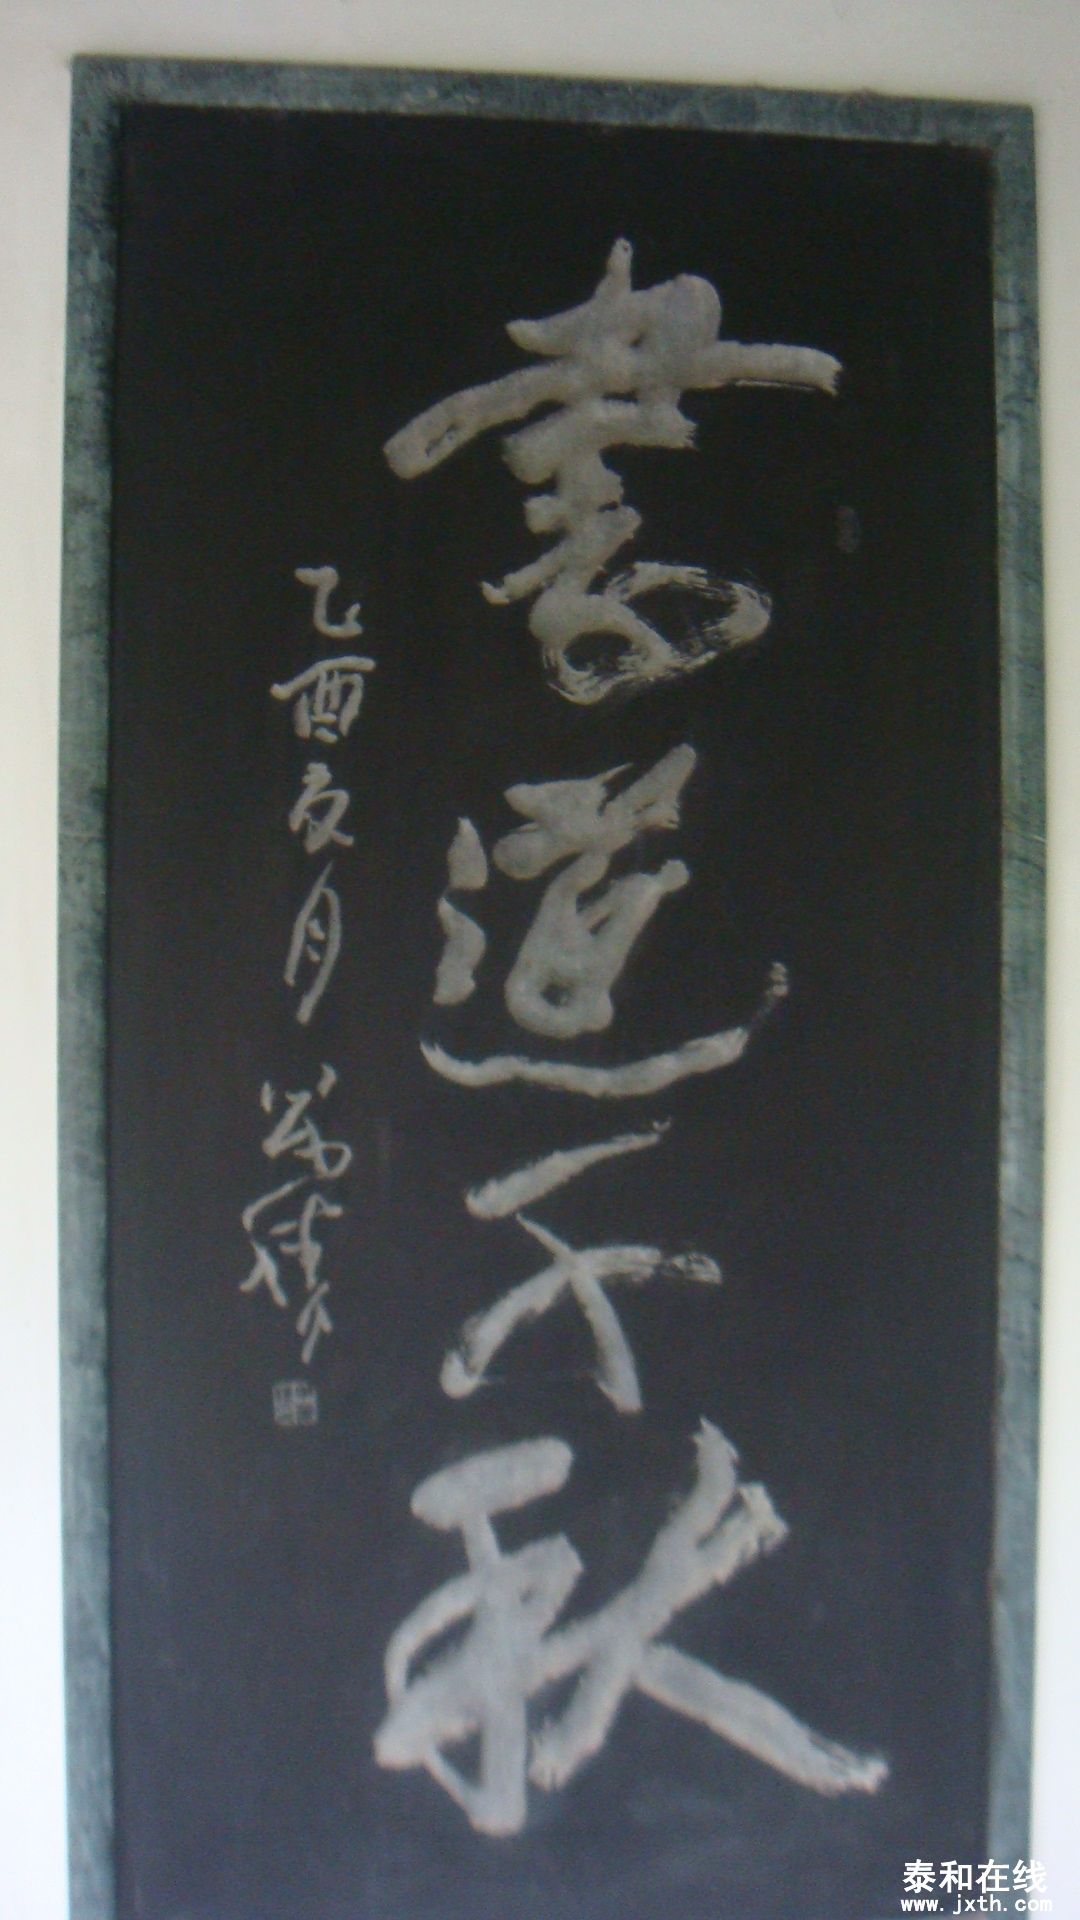 書道千秋
乙酉夏月
泰和在线
www.jxth.com